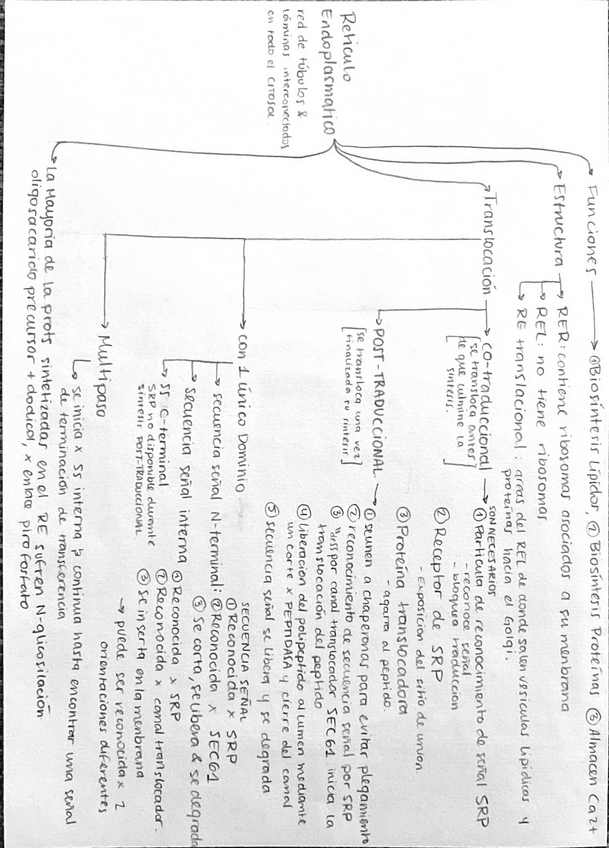 Retículo
Endoplasmático
red de túbulos &
láminas interconectados
en todo el CITOSOL.
Funciones → ① Biosíntesis Lípidos, ② Biosíntesis Proteínas ③ Almacen Ca2+
Estructura → RER: contiene ribosomas asociados a su membrana
REL: no tiene ribosomas
RE translacional: areas del REL de donde salen vesiculas lipidicas y
proteínas hacia el Golgi.
Translocación → co-traduccional →
se transloca antes
de que culmine la
sintesis.
SON NECESARIOS
① Particula de reconocimiento de señal SRP
- reconoce señal
- bloquea traducción
② Receptor de SRP
- Exposicion del sitio de union.
③ Proteína translocadora
- agarra al peptido.
POST-TRADUCCIONAL →
se transloca una vez
finalizada su sintesis
① se unen a chaperonas para evitar plegamiento
② reconocimiento de secuencia señal por SRP
③ por canal translocador SEC61 inicia la
translocación del peptido
④ liberacion del polipeptido al lumen mediante
un corte x PEPTIDASA y cierre del canal
⑤ secuencia señal se libera y se degrada
con 1 único Dominio
secuencia señal N-terminal:
SECUENCIA SEÑAL
① Reconocida x SRP
② Reconocida x SEC61
③ se corta, se libera & se degrada
secuencia señal interna
① Reconocida x SRP
② Reconocida x canal translocador.
③ se inserta en la membrana
→ puede ser reconocida x 2
orientaciones diferentes
SS C-terminal
SRP no disponible durante
sintesis POST-TRADUCCIONAL
Multipaso
se inicia x SS interna y continua hasta encontrar una señal
de terminación de transferencia
La Mayoría de la prots sintetizadas en el RE sufren N-glicosilación
oligosacarido precursor + dodicol, x enlace pirofosfato